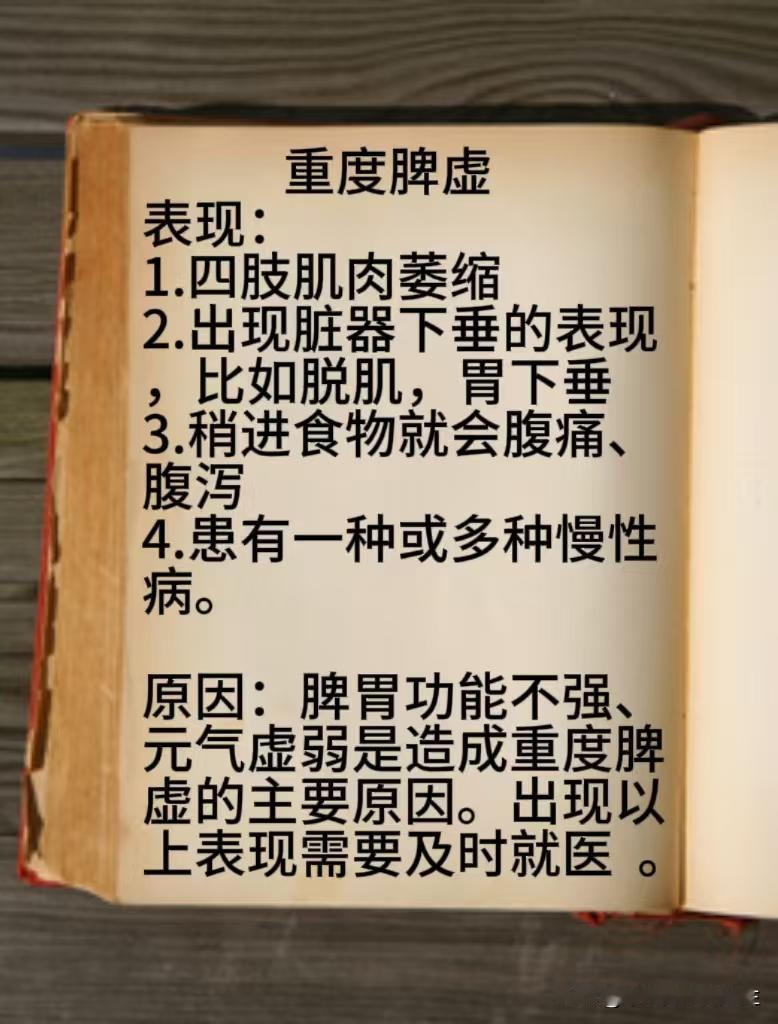 重度脾虚
表现：
1.四肢肌肉萎缩
2.出现脏器下垂的表现
，比如脱肌，胃下垂
3.稍进食物就会腹痛、
腹泻
4.患有一种或多种慢性
病。
原因：脾胃功能不强、
元气虚弱是造成重度脾
虚的主要原因。出现以
上表现需要及时就医 。